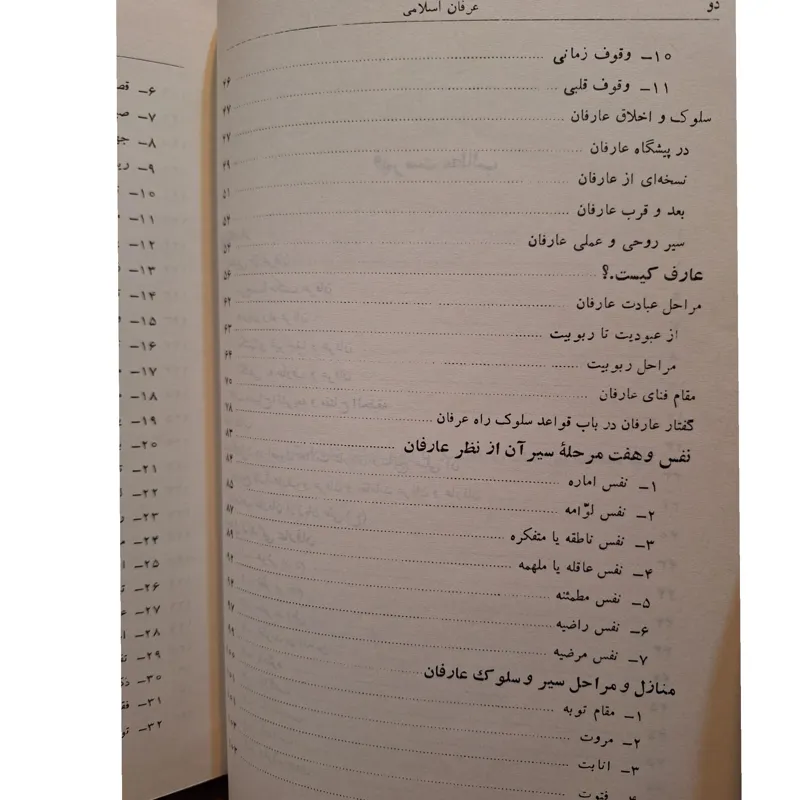 دو
عرفان اسلامی
۱۰ـ وقوف زمانی ۴۶
۱۱ـ وقوف قلبی ۴۷
سلوک و اخلاق عارفان ۴۷
در پیشگاه عارفان ۴۹
نسخه‌ای از عارفان ۵۱
بعد و قرب عارفان ۵۲
سیر روحی و عملی عارفان ۵۴
عارف کیست.؟ ۵۶
مراحل عبادت عارفان ۶۲
از عبودیت تا ربوبیت ۶۳
مراحل ربوبیت ۶۴
مقام فنای عارفان ۷۵
گفتار عارفان در باب قواعد سلوک راه عرفان ۷۸
نفس و هفت مرحلهٔ سیر آن از نظر عارفان ۸۳
۱ـ نفس اماره ۸۴
۲ـ نفس لوّامه ۸۵
۳ـ نفس ناطقه یا متفکره ۸۷
۴ـ نفس عاقله یا ملهمه ۸۹
۵ـ نفس مطمئنه ۹۲
۶ـ نفس راضیه ۹۴
۷ـ نفس مرضیه ۹۷
منازل و مراحل سیر و سلوک عارفان ۹۹
۱ـ مقام توبه ۱۰۰
۲ـ مروت ۱۰۱
۳ـ انابت ۱۰۱
۴ـ فتوت ۱۰۳
۶ـ
۷ـ
۸ـ
۹ـ
۱۰ـ
۱۱ـ
۱۲ـ
۱۳ـ
۱۴ـ
۱۵ـ
۱۶ـ
۱۷ـ
۱۸ـ
۱۹ـ
۲۰ـ
۲۱ـ
۲۲ـ
۲۳ـ
۲۴ـ
۲۵ـ
۲۶ـ
۲۷ـ
۲۸ـ
۲۹ـ
۳۰ـ
۳۱ـ
۳۲ـ